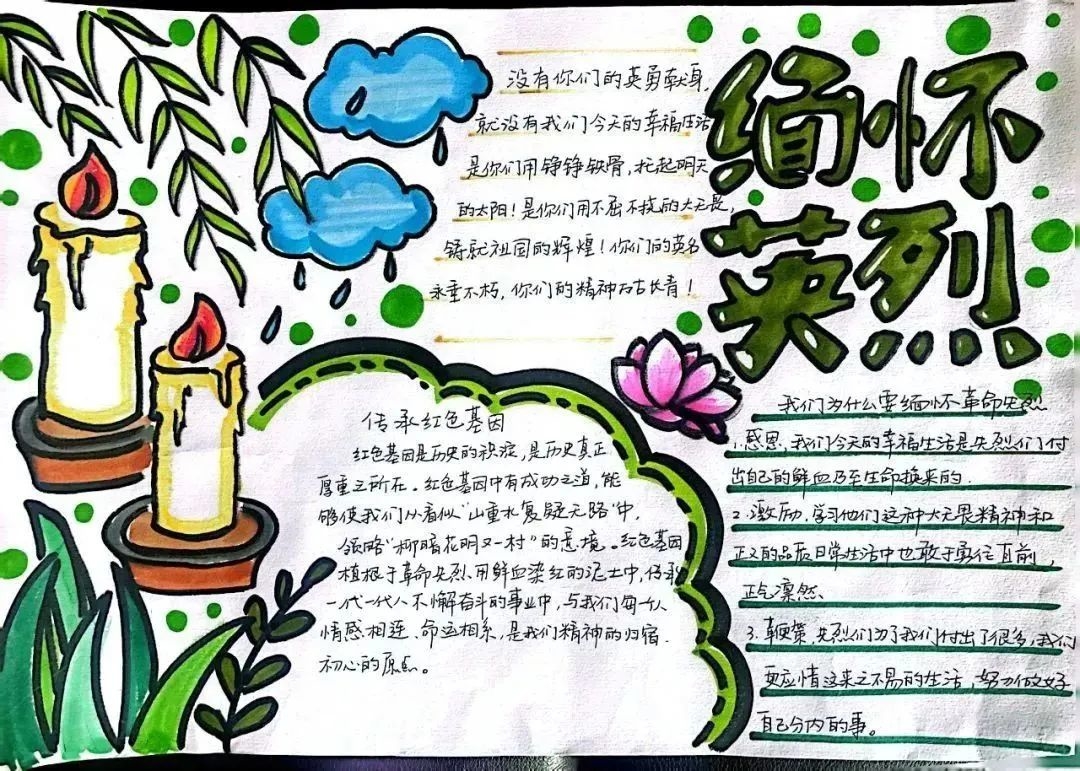 缅怀
英烈
没有你们的英勇献身,
就没有我们今天的幸福生活
是你们用铮铮铁骨,托起明天
的太阳!是你们用不屈不拔的大无畏,
铸就祖国的辉煌!你们的英名
永垂不朽,你们的精神万古长青!
传承红色基因
红色基因是历史的积淀,是历史真正
厚重之所在。红色基因中有成功之道,能
够使我们从看似“山重水复疑无路”中,
领略“柳暗花明又一村”的意境。红色基因
植根于革命先烈用鲜血染红的泥土中,传承
一代一代人不懈奋斗的事业中,与我们每个人
情感相连、命运相系,是我们精神的归宿、
初心的原点。
我们为什么要缅怀革命先烈
1.感恩,我们今天的幸福生活是先烈们付
出自己的鲜血乃至生命换来的.
2.激励,学习他们这种大无畏精神和
正义的品质日常生活中也敢于勇往直前,
正气凛然、
3.鞭策 先烈们为了我们付出了很多,我们
更应情这来之不易的生活,努力做好
自己分内的事。